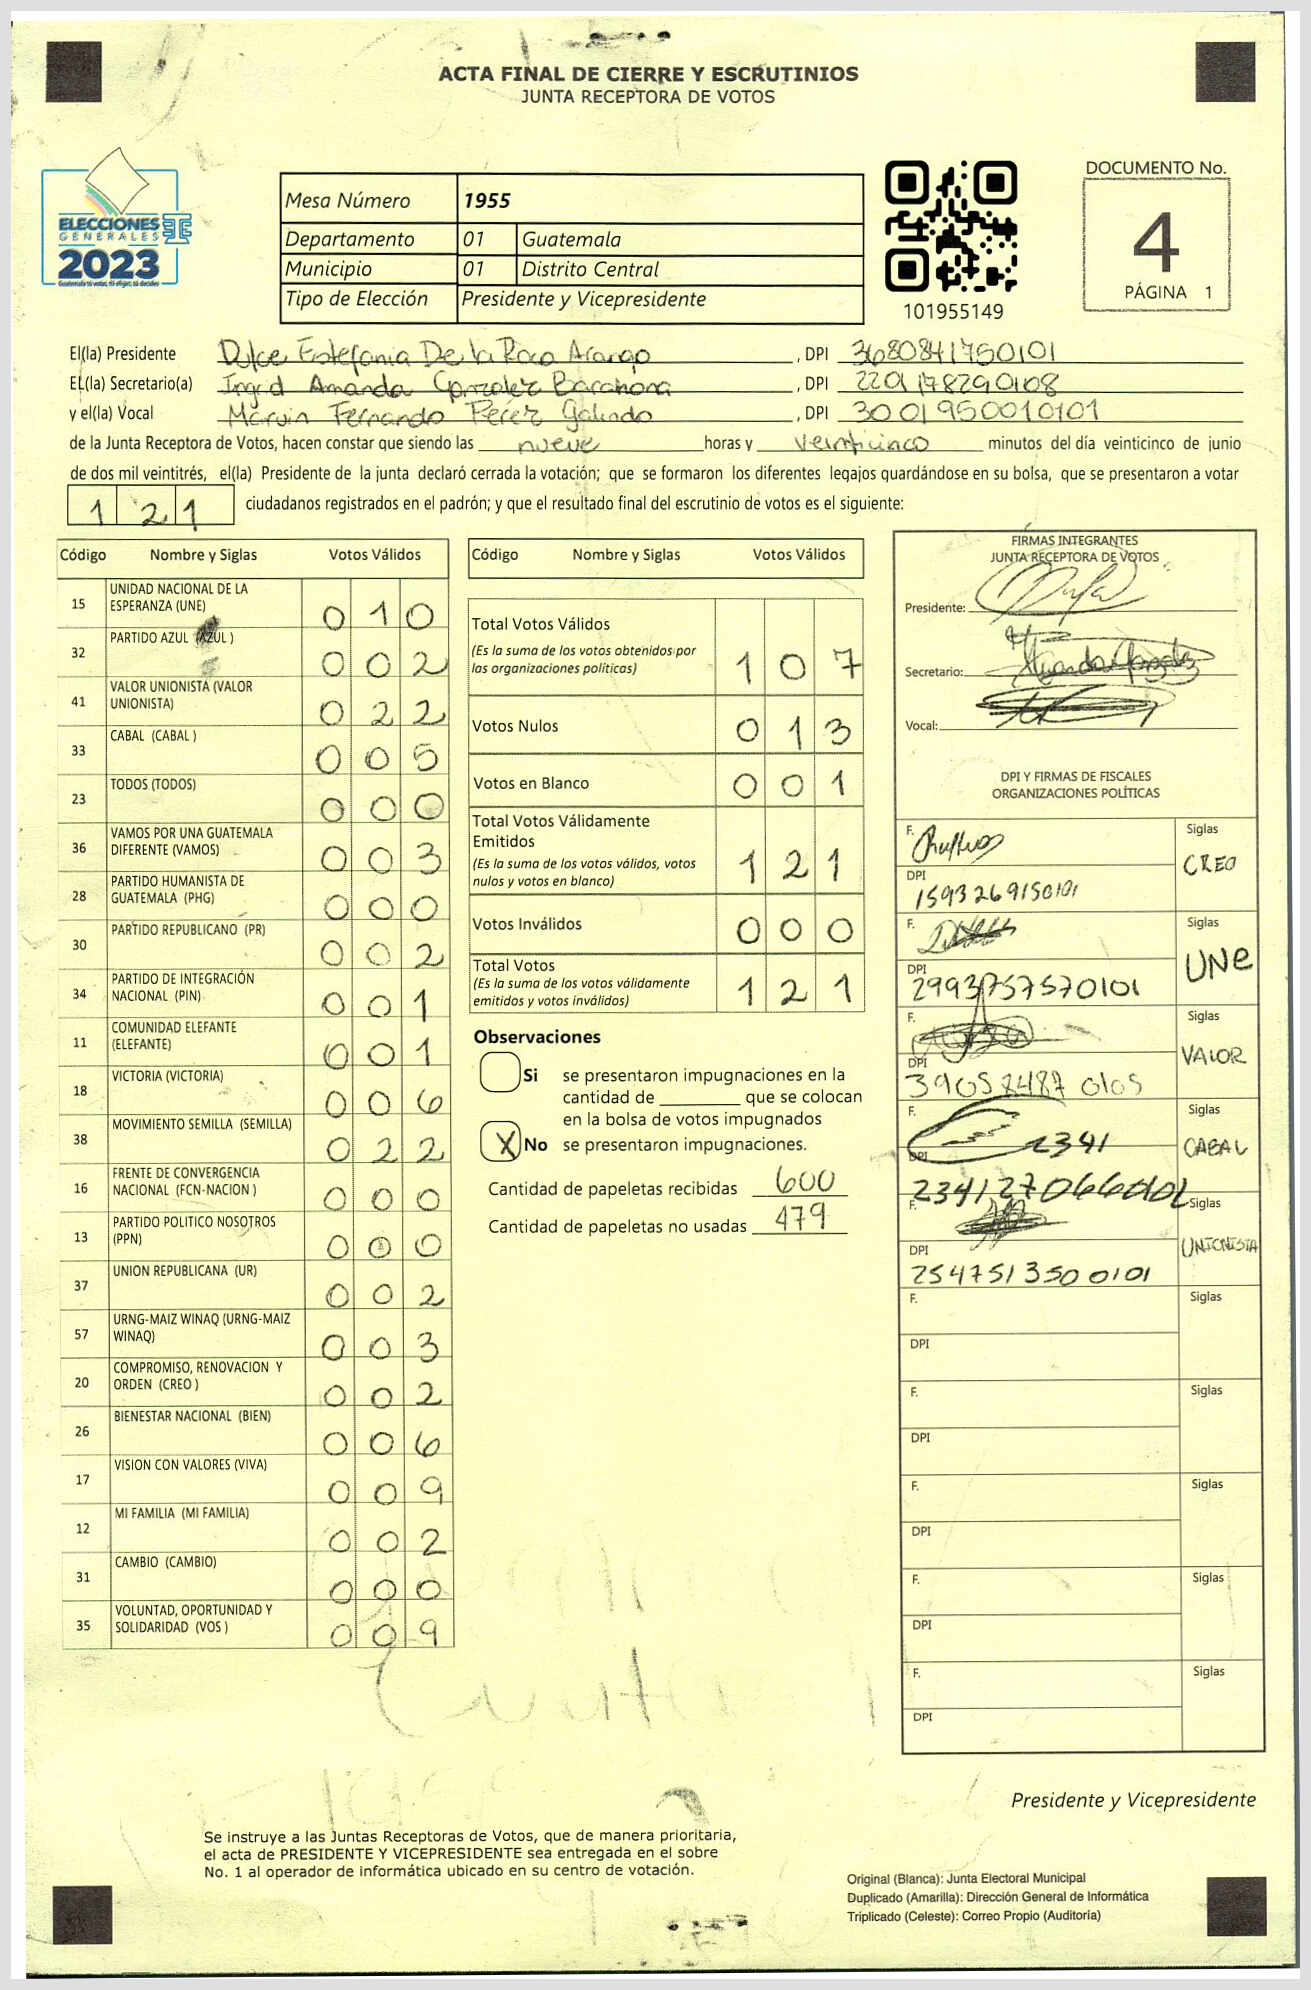 ACTA FINAL DE CIERRE Y ESCRUTINIOS
JUNTA RECEPTORA DE VOTOS
ELECCIONES
GENERALES
2023
Guatemala tú votas, tú eliges, tú decides
Mesa Número 1955
Departamento 01 Guatemala
Municipio 01 Distrito Central
Tipo de Elección Presidente y Vicepresidente
101955149
DOCUMENTO No.
4
PÁGINA 1
El(la) Presidente Dulce Estefania De la Roca Arango , DPI 3680841750101
EL(la) Secretario(a) Ingrid Amanda Gonzalez Barahona , DPI 2201178290108
y el(la) Vocal Marvin Fernando Perez Galindo , DPI 3001950010101
de la Junta Receptora de Votos, hacen constar que siendo las nueve horas y veinticinco minutos del día veinticinco de junio
de dos mil veintitrés, el(la) Presidente de la junta declaró cerrada la votación; que se formaron los diferentes legajos guardándose en su bolsa, que se presentaron a votar
121 ciudadanos registrados en el padrón; y que el resultado final del escrutinio de votos es el siguiente:
Código Nombre y Siglas Votos Válidos
15 UNIDAD NACIONAL DE LA ESPERANZA (UNE) 010
32 PARTIDO AZUL (AZUL ) 002
41 VALOR UNIONISTA (VALOR UNIONISTA) 022
33 CABAL (CABAL ) 005
23 TODOS (TODOS) 000
36 VAMOS POR UNA GUATEMALA DIFERENTE (VAMOS) 003
28 PARTIDO HUMANISTA DE GUATEMALA (PHG) 000
30 PARTIDO REPUBLICANO (PR) 002
34 PARTIDO DE INTEGRACIÓN NACIONAL (PIN) 001
11 COMUNIDAD ELEFANTE (ELEFANTE) 001
18 VICTORIA (VICTORIA) 006
38 MOVIMIENTO SEMILLA (SEMILLA) 022
16 FRENTE DE CONVERGENCIA NACIONAL (FCN-NACION ) 000
13 PARTIDO POLITICO NOSOTROS (PPN) 000
37 UNION REPUBLICANA (UR) 002
57 URNG-MAIZ WINAQ (URNG-MAIZ WINAQ) 003
20 COMPROMISO, RENOVACION Y ORDEN (CREO ) 002
26 BIENESTAR NACIONAL (BIEN) 006
17 VISION CON VALORES (VIVA) 009
12 MI FAMILIA (MI FAMILIA) 002
31 CAMBIO (CAMBIO) 000
35 VOLUNTAD, OPORTUNIDAD Y SOLIDARIDAD (VOS ) 009
Código Nombre y Siglas Votos Válidos
Total Votos Válidos
(Es la suma de los votos obtenidos por
las organizaciones políticas) 107
Votos Nulos 013
Votos en Blanco 001
Total Votos Válidamente
Emitidos
(Es la suma de los votos válidos, votos
nulos y votos en blanco) 121
Votos Inválidos 000
Total Votos
(Es la suma de los votos válidamente
emitidos y votos inválidos) 121
Observaciones
Si se presentaron impugnaciones en la
cantidad de ________ que se colocan
en la bolsa de votos impugnados
X No se presentaron impugnaciones.
Cantidad de papeletas recibidas 600
Cantidad de papeletas no usadas 479
FIRMAS INTEGRANTES
JUNTA RECEPTORA DE VOTOS
Presidente:
Secretario:
Vocal:
DPI Y FIRMAS DE FISCALES
ORGANIZACIONES POLÍTICAS
F. Siglas
CREO
DPI
1593269150101
F. Siglas
UNE
DPI
2993757570101
F. Siglas
VALOR
DPI
390584870105
F. Siglas
2341 CABAL
DPI
F. Siglas
UNIONISTA
DPI
2547513500101
F. Siglas
DPI
F. Siglas
DPI
F. Siglas
DPI
F. Siglas
DPI
F. Siglas
DPI
Presidente y Vicepresidente
Se instruye a las Juntas Receptoras de Votos, que de manera prioritaria,
el acta de PRESIDENTE Y VICEPRESIDENTE sea entregada en el sobre
No. 1 al operador de informática ubicado en su centro de votación.
Original (Blanca): Junta Electoral Municipal
Duplicado (Amarilla): Dirección General de Informática
Triplicado (Celeste): Correo Propio (Auditoría)